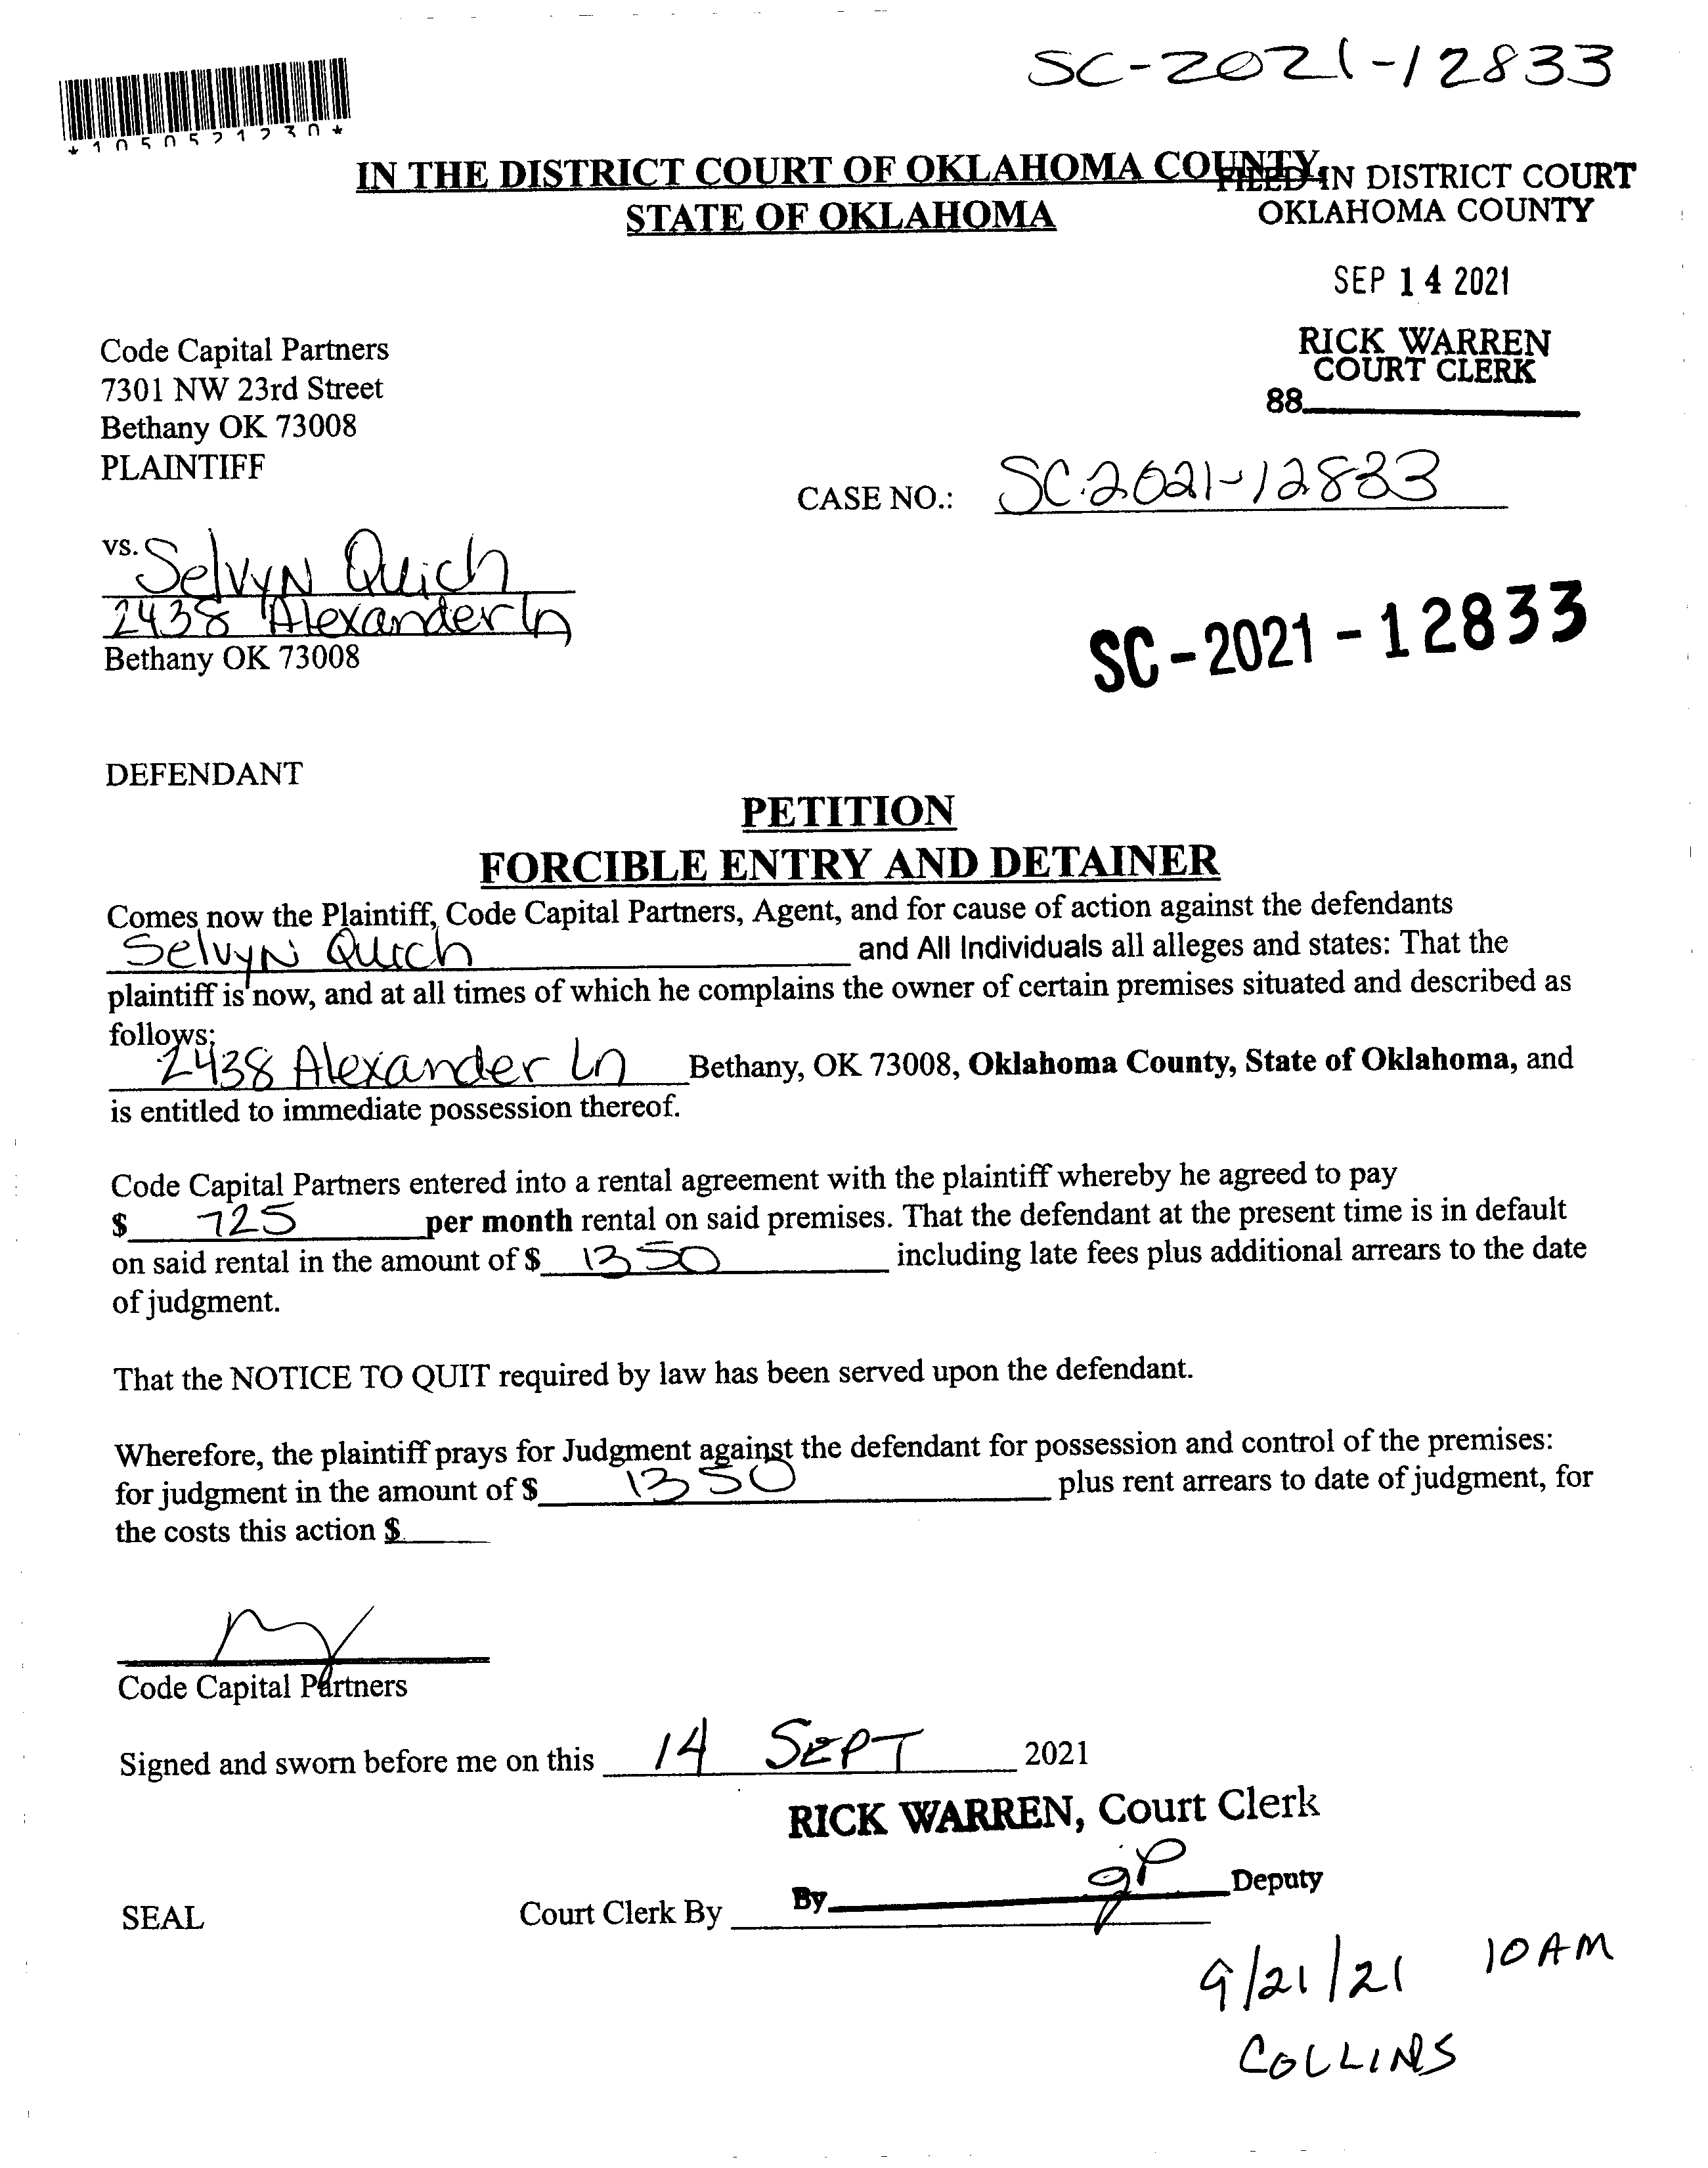 SC-2021-12833
*1050521230*
IN THE DISTRICT COURT OF OKLAHOMA COUNTY
STATE OF OKLAHOMA
FILED IN DISTRICT COURT
OKLAHOMA COUNTY
SEP 14 2021
RICK WARREN
COURT CLERK
88
Code Capital Partners
7301 NW 23rd Street
Bethany OK 73008
PLAINTIFF
CASE NO.: SC-2021-12833
vs. Selvyn Quich
2438 Alexander Ln
Bethany OK 73008
SC-2021-12833
DEFENDANT
PETITION
FORCIBLE ENTRY AND DETAINER
Comes now the Plaintiff, Code Capital Partners, Agent, and for cause of action against the defendants
Selvyn Quich and All Individuals all alleges and states: That the
plaintiff is now, and at all times of which he complains the owner of certain premises situated and described as
follows:
2438 Alexander Ln Bethany, OK 73008, Oklahoma County, State of Oklahoma, and
is entitled to immediate possession thereof.
Code Capital Partners entered into a rental agreement with the plaintiff whereby he agreed to pay
$ 725 per month rental on said premises. That the defendant at the present time is in default
on said rental in the amount of $ 1350 including late fees plus additional arrears to the date
of judgment.
That the NOTICE TO QUIT required by law has been served upon the defendant.
Wherefore, the plaintiff prays for Judgment against the defendant for possession and control of the premises:
for judgment in the amount of $ 1350 plus rent arrears to date of judgment, for
the costs this action $
Code Capital Partners
Signed and sworn before me on this 14 SEPT 2021
RICK WARREN, Court Clerk
By gp Deputy
SEAL Court Clerk By
9/21/21 10 AM
COLLINS